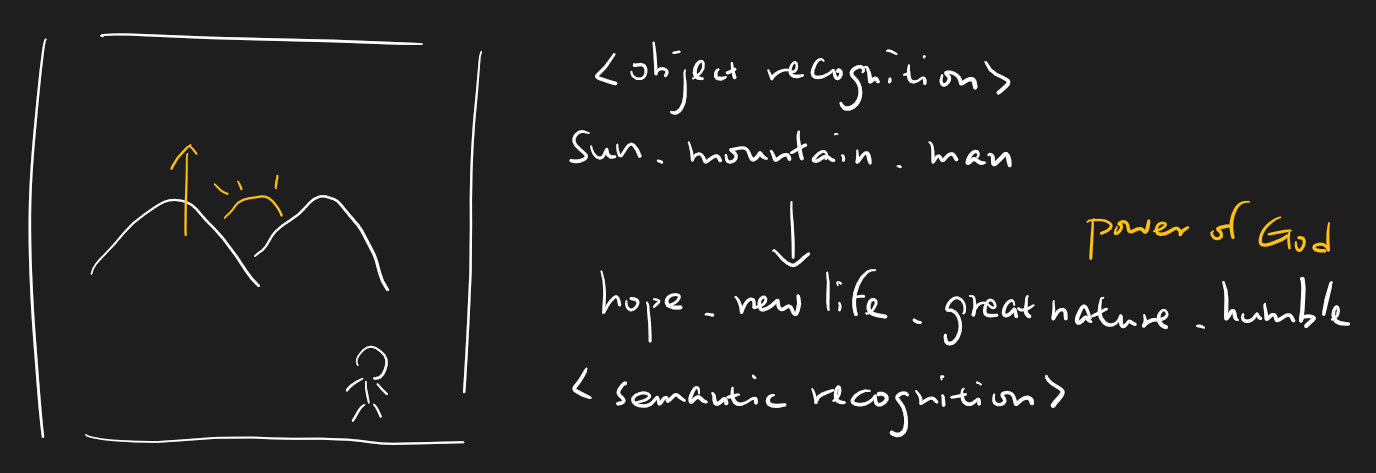 <object recognition>
Sun. mountain. man
power of God
hope. new life. great nature. humble
<semantic recognition>